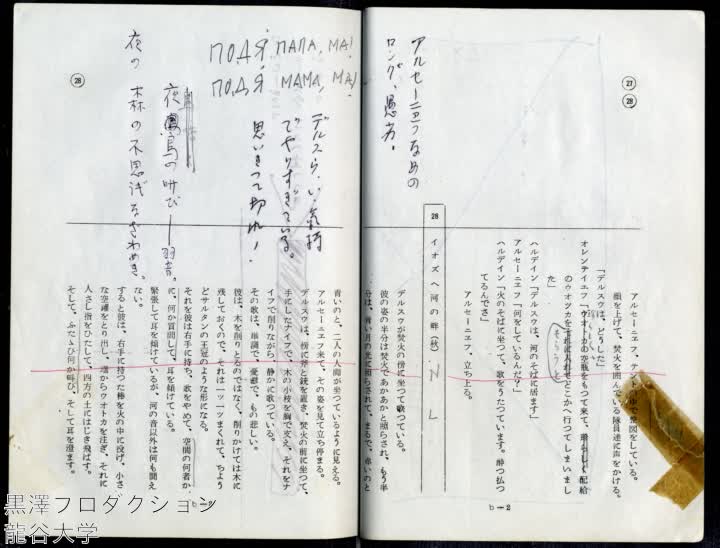 ㉗
㉘
アルセーニエフなめの
ロング、愚劣。
アルセーニエフ、テントの中で製図をしている。
顔を上げて、焚火を囲んでいる隊員達に声をかける。
「デルスウは、どうした」
オレンテイエフ「ウオトカの空瓶をもつて来て、
配給のウオツカを
どこかへ行つてしまいました」
そちらうと
ヘルデイン「デルスウは、河のそばに居ます」
アルセーニエフ「何をしているんだ?」
ヘルデイン「火のそばに坐つて、歌をうたつています。酔つ払つ
てるんでさ」
アルセーニエフ、立ち上る。
28 イオズヘ河の畔(秋) N L
デルスウが焚火の傍に坐つて歌つている。
彼の姿の半分は焚火であかあかと照らされ、もう半
分は、青い月の光に照らされて、まるで、赤いのと
b-2
ПОДЯ, ПАПА, МА!
ПОДЯ МАМА, МА!
デルスウらしい気持
でやりすぎている。
思いきつて切れ!
夜鳥の叫び―羽音。
夜の森の不思議なざわめき。
㉘
青いのと、二人の人物が坐つているように見える。
アルセーニエフ来て、その姿を見て立ち停まる。
デルスウは、傍に斧と銃を置き、焚火の前に坐つて、
手にしたナイフで、木の小枝を胸で支え、それをナ
イフで削りながら、静かに歌つている。
その歌は、単調で、憂鬱で、もの悲しい。
彼は、木を削りとるのではなく、削りかけては木に
残しておくので、それは一ツ一ツまくれて、ちよう
どサルタンの王冠のような形になる。
それを彼は右手に持ち、歌をやめて、空間の何者か
に、何か質問して、耳を傾けている。
緊張して耳を傾けているが、河の音以外は何も聞え
ない。
すると彼は、右手に持つた棒を火の中に投げ、小さ
な空罐をとり出し、瓶からウオトカを注ぎ、それに
人さし指をひたして、四方の土にはじき飛ばす。
そして、ふたゝび何か叫び、そして耳を澄ます。
黒澤プロダクション
龍谷大学